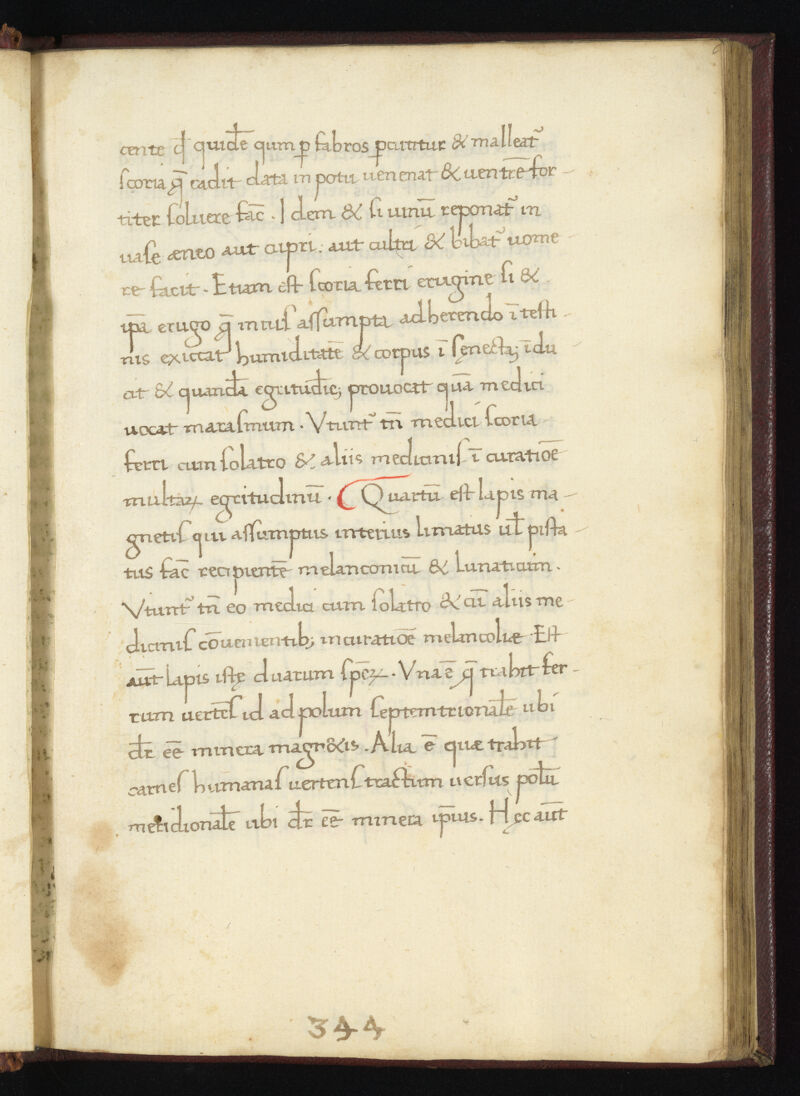 cente ꝗ quidē qum ꝑ fabros ꝑcutitur & malleat᷑
scoria q̄ cadit data in potu uenenat & uentrē for-
titer soluere fac̄. Idem & si uinū reponat᷑ in
uase æneo aut cupri: aut cultri & bibat᷑ uome-
re facit. Etiam est scoria ferri erugine si &
ip̄a erugo q̄ intus assumpta adherendo ītesti-
nis exiccat humiditatē & corpus ī sęnectaꝫ īdu-
cit & quandā egritudīeꝫ prouocat quā medici
uocāt marasmum. Vtunt᷑ tn̄ medici scoria
ferri cum solatro & aliis medicinis ī curatiōe
multaꝝ egritudinū. Quartū est lapis ma-
gnetis qui assumptus interius limatus ul̄ pista-
tus fac̄ recipientē melanconicū & lunaticum.
Vtunt᷑ tn̄ eo medici cum solatro & cū aliis me-
dicinis cōuenientibꝫ in curatiōe melancoliæ. Est
aūt lapis istę duarum spēꝝ. Vna ē q̄ trahit fer-
rum uertēs id ad polum septemtrionalē ubi
dr̄ eē minera magn&is. Alia ē quæ trahit
carnes humanas uertens tractum uersus polū
meridionalē ubi dr̄ eē minera ip̄ius. Hęc aūt
344